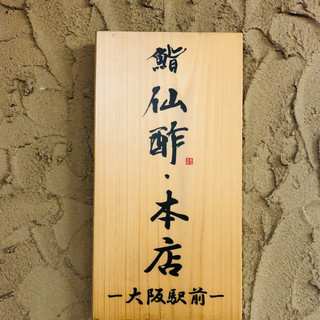 鮨 仙酢・本店
ー大阪駅前ー